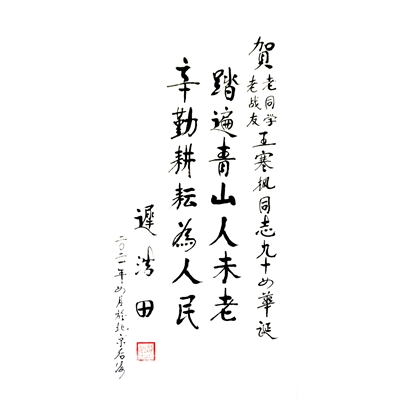 贺老同学老战友王寒枫同志九十华诞
踏遍青山人未老
辛勤耕耘為人民
遲浩田
二〇二一年四月於北京后海